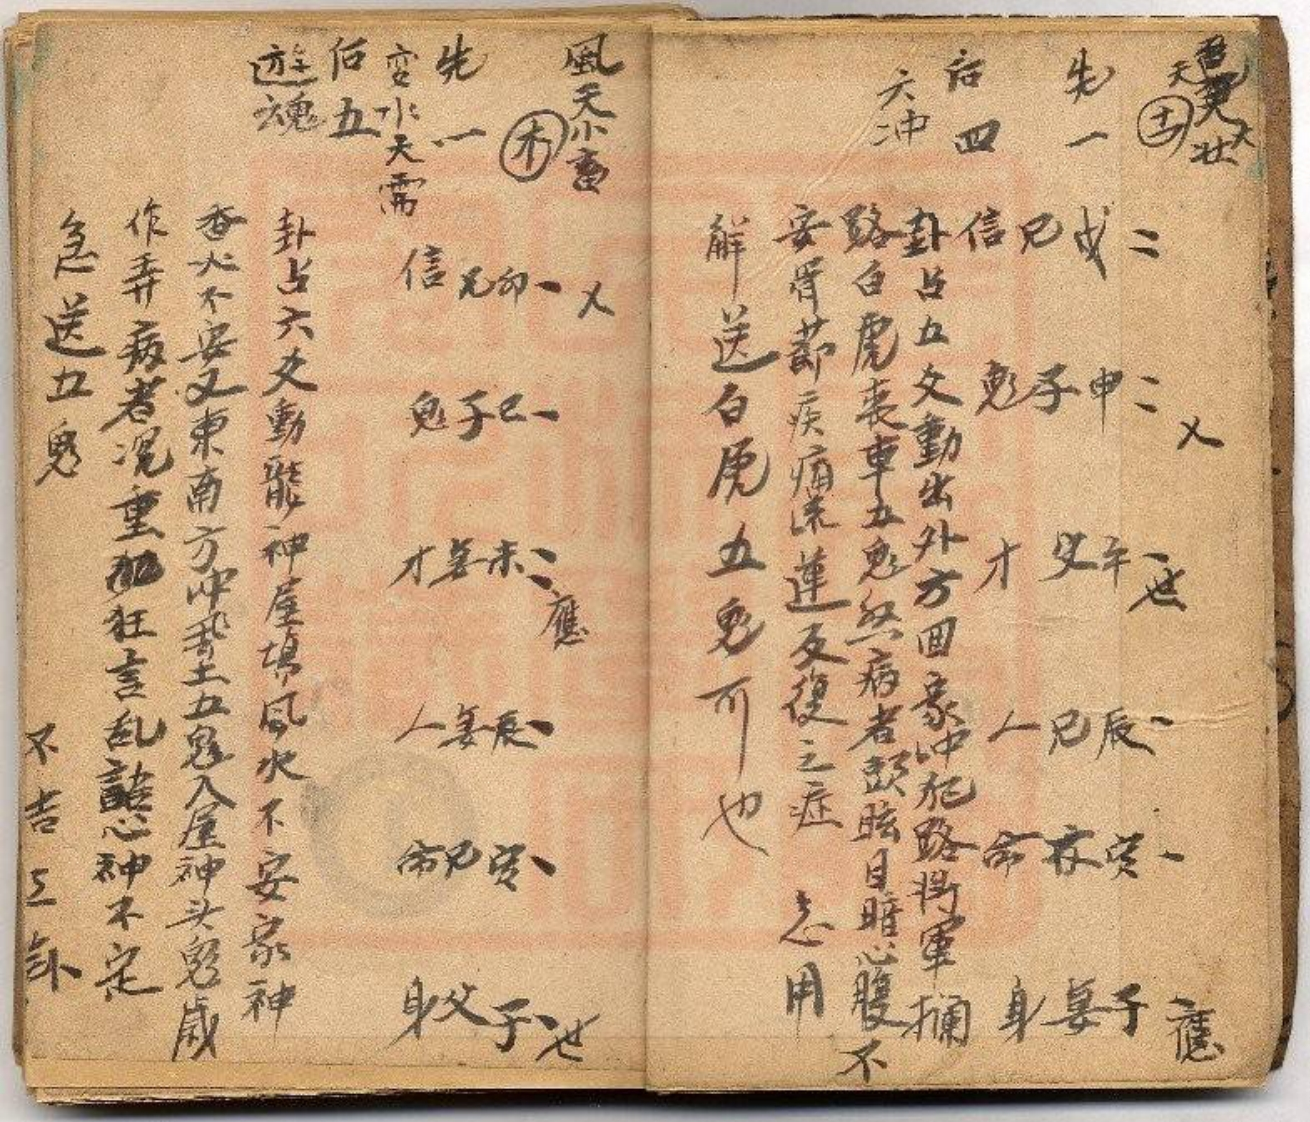 雷天大壯
土
先一
后四
六冲
二戌兄信
二申子鬼
乂
午父才
世
辰兄人
寅 命
子妻身
應
卦占五爻動出外方回家冲犯路將軍攔
路白虎喪車五鬼 病者頭眩目暗心腹不
安骨節疾痛流蓮反復之症 急用
解送白虎五鬼可也
風天小畜
木
先一
变水天需
后五
遊魂
卯兄信
乂
巳子鬼
未妻才
應
辰妻人
寅兄命
子父身
世
卦占六爻動龍神屋塲風火不安家神
香火不安又東南方冲 土五鬼入屋神头鬼歳
作弄病者况重 狂言乱語心神不定
急送五鬼
不吉之卦